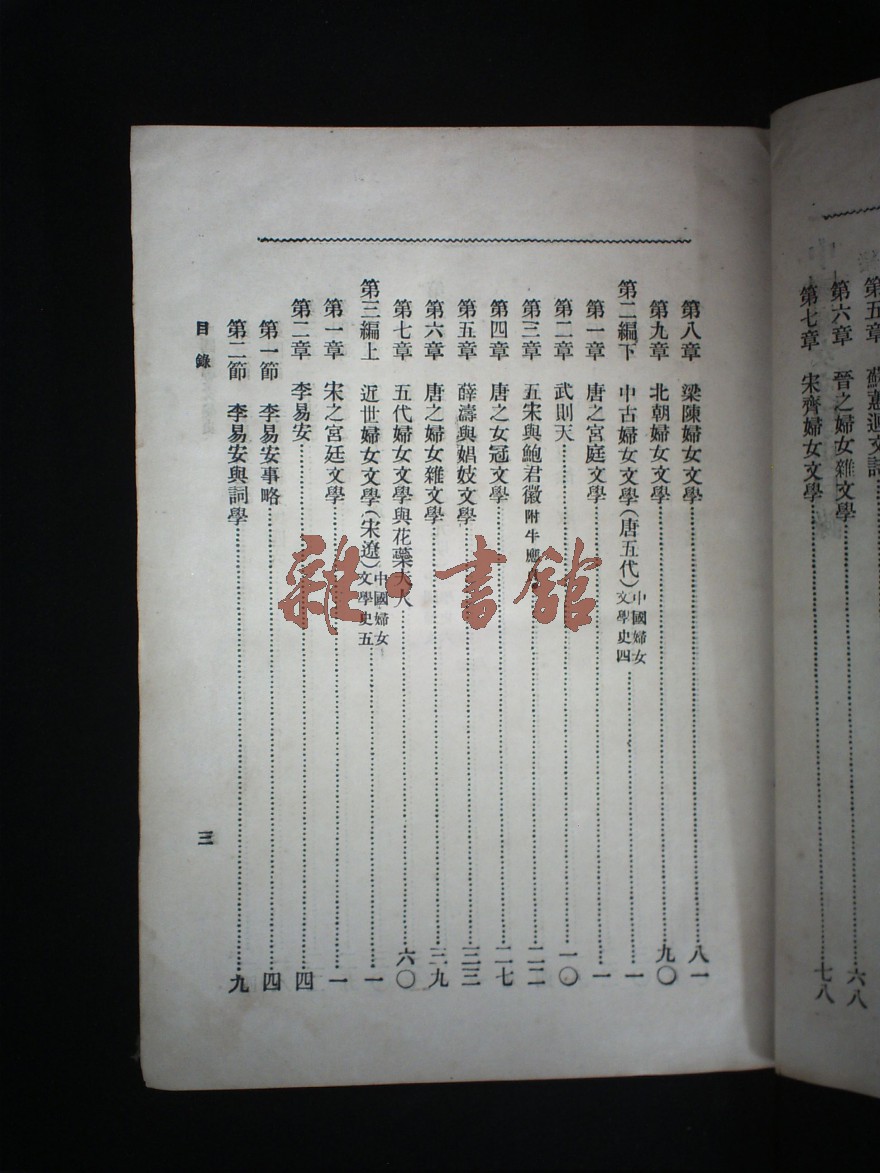 第五章　蘇蕙迴文詩
第六章　晉之婦女雜文學……六八
第七章　宋齊婦女文學……七八
第八章　梁陳婦女文學……八一
第九章　北朝婦女文學……九〇
第二編下　中古婦女文學(唐五代)中國婦女文學史四……一
第一章　唐之宮庭文學……一
第二章　武則天……一〇
第三章　五宋與鮑君徽附牛應……二二
第四章　唐之女冠文學……二七
第五章　薛濤與娼妓文學……三三
第六章　唐之婦女雜文學……三九
第七章　五代婦女文學與花蘂夫人……六〇
第三編上　近世婦女文學(宋遼)中國婦女文學史五……一
第一章　宋之宮廷文學……一
第二章　李易安……四
第一節　李易安事略……四
第二節　李易安與詞學……九
目錄
三
雜·書館